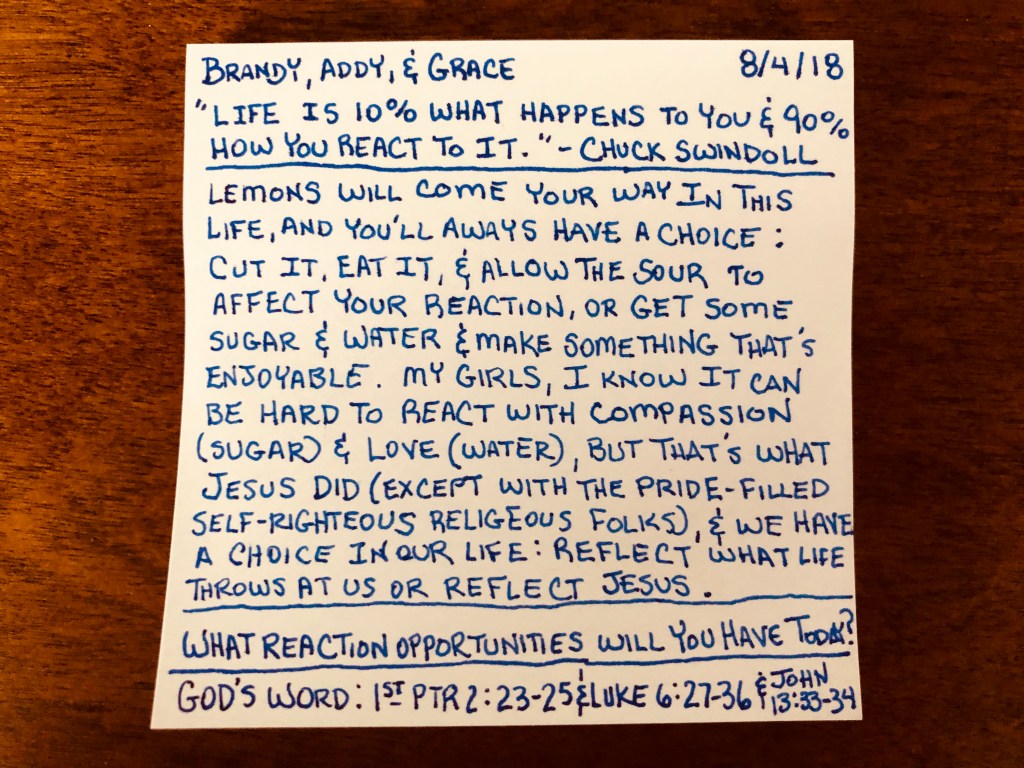 BRANDY, ADDY, & GRACE 8/4/18
"LIFE IS 10% WHAT HAPPENS TO YOU & 90%
HOW YOU REACT TO IT." - CHUCK SWINDOLL
LEMONS WILL COME YOUR WAY IN THIS
LIFE, AND YOU'LL AWAYS HAVE A CHOICE:
CUT IT, EAT IT, & ALLOW THE SOUR TO
AFFECT YOUR REACTION, OR GET SOME
SUGAR & WATER & MAKE SOMETHING THAT'S
ENJOYABLE. MY GIRLS, I KNOW IT CAN
BE HARD TO REACT WITH COMPASSION
(SUGAR) & LOVE (WATER), BUT THAT'S WHAT
JESUS DID (EXCEPT WITH THE PRIDE-FILLED
SELF-RIGHTEOUS RELIGEOUS FOLKS), & WE HAVE
A CHOICE IN OUR LIFE: REFLECT WHAT LIFE
THROWS AT US OR REFLECT JESUS.
WHAT REACTION OPPORTUNITIES WILL YOU HAVE TODAY?
GOD'S WORD: 1ST PTR 2:23-25 & LUKE 6:27-36 & JOHN
13:33-34